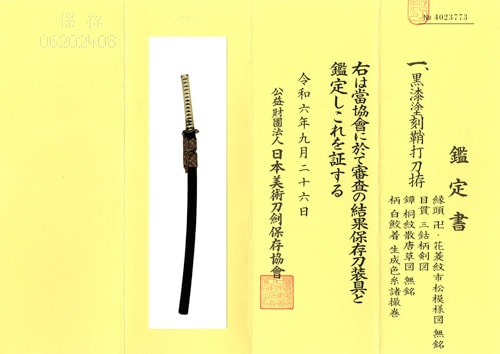 № 4023773
鑑定書
一、黒漆塗刻鞘打刀拵
縁頭 卍・花菱紋市松模様図 無銘
目貫 三鈷柄剣図
鐔 桐紋散唐草図 無銘
柄 白鮫着 生成色糸諸撮巻
右は當協會に於て審査の結果保存刀装具と
鑑定しこれを証する
令和六年九月二十六日
公益財團法人 日本美術刀劍保存協會
保存
06202408